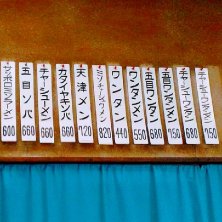 チャーシューワンタン 750
チャーシューワンタン 680
五目ワンタンメン 750
五目ワンタン 680
ワンタンメン 550
ワンタン 440
ミソチャーシューメン 820
天津メン 720
カタイヤキソバ 660
チャーシューメン 660
五目ソバ 660
サッポロミソラーメン 600